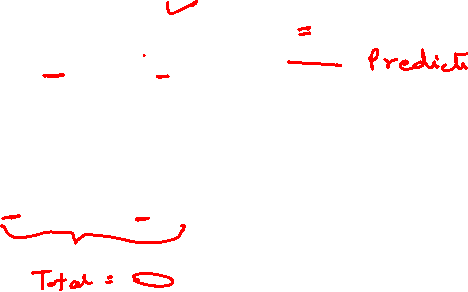 =
— Predicti
Total = 0